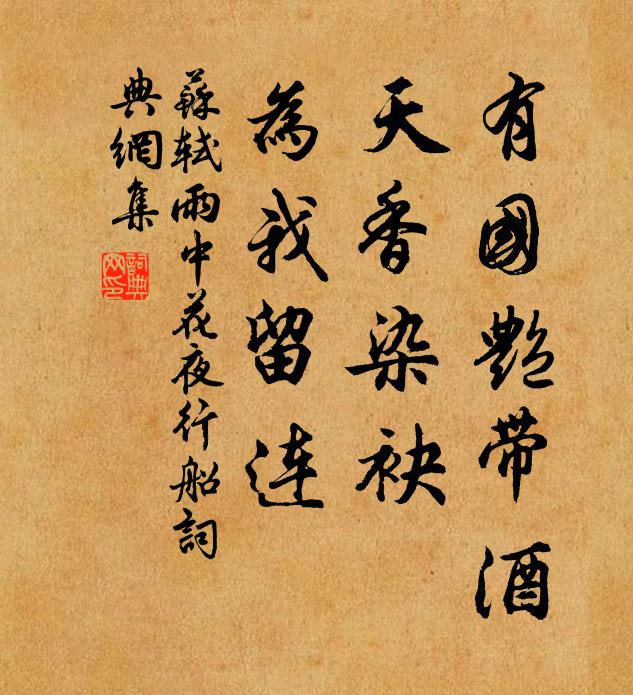 有國艷帶酒
天香染袂
為我留連
蘇軾雨中花夜行船詞
典網集
詞典网印